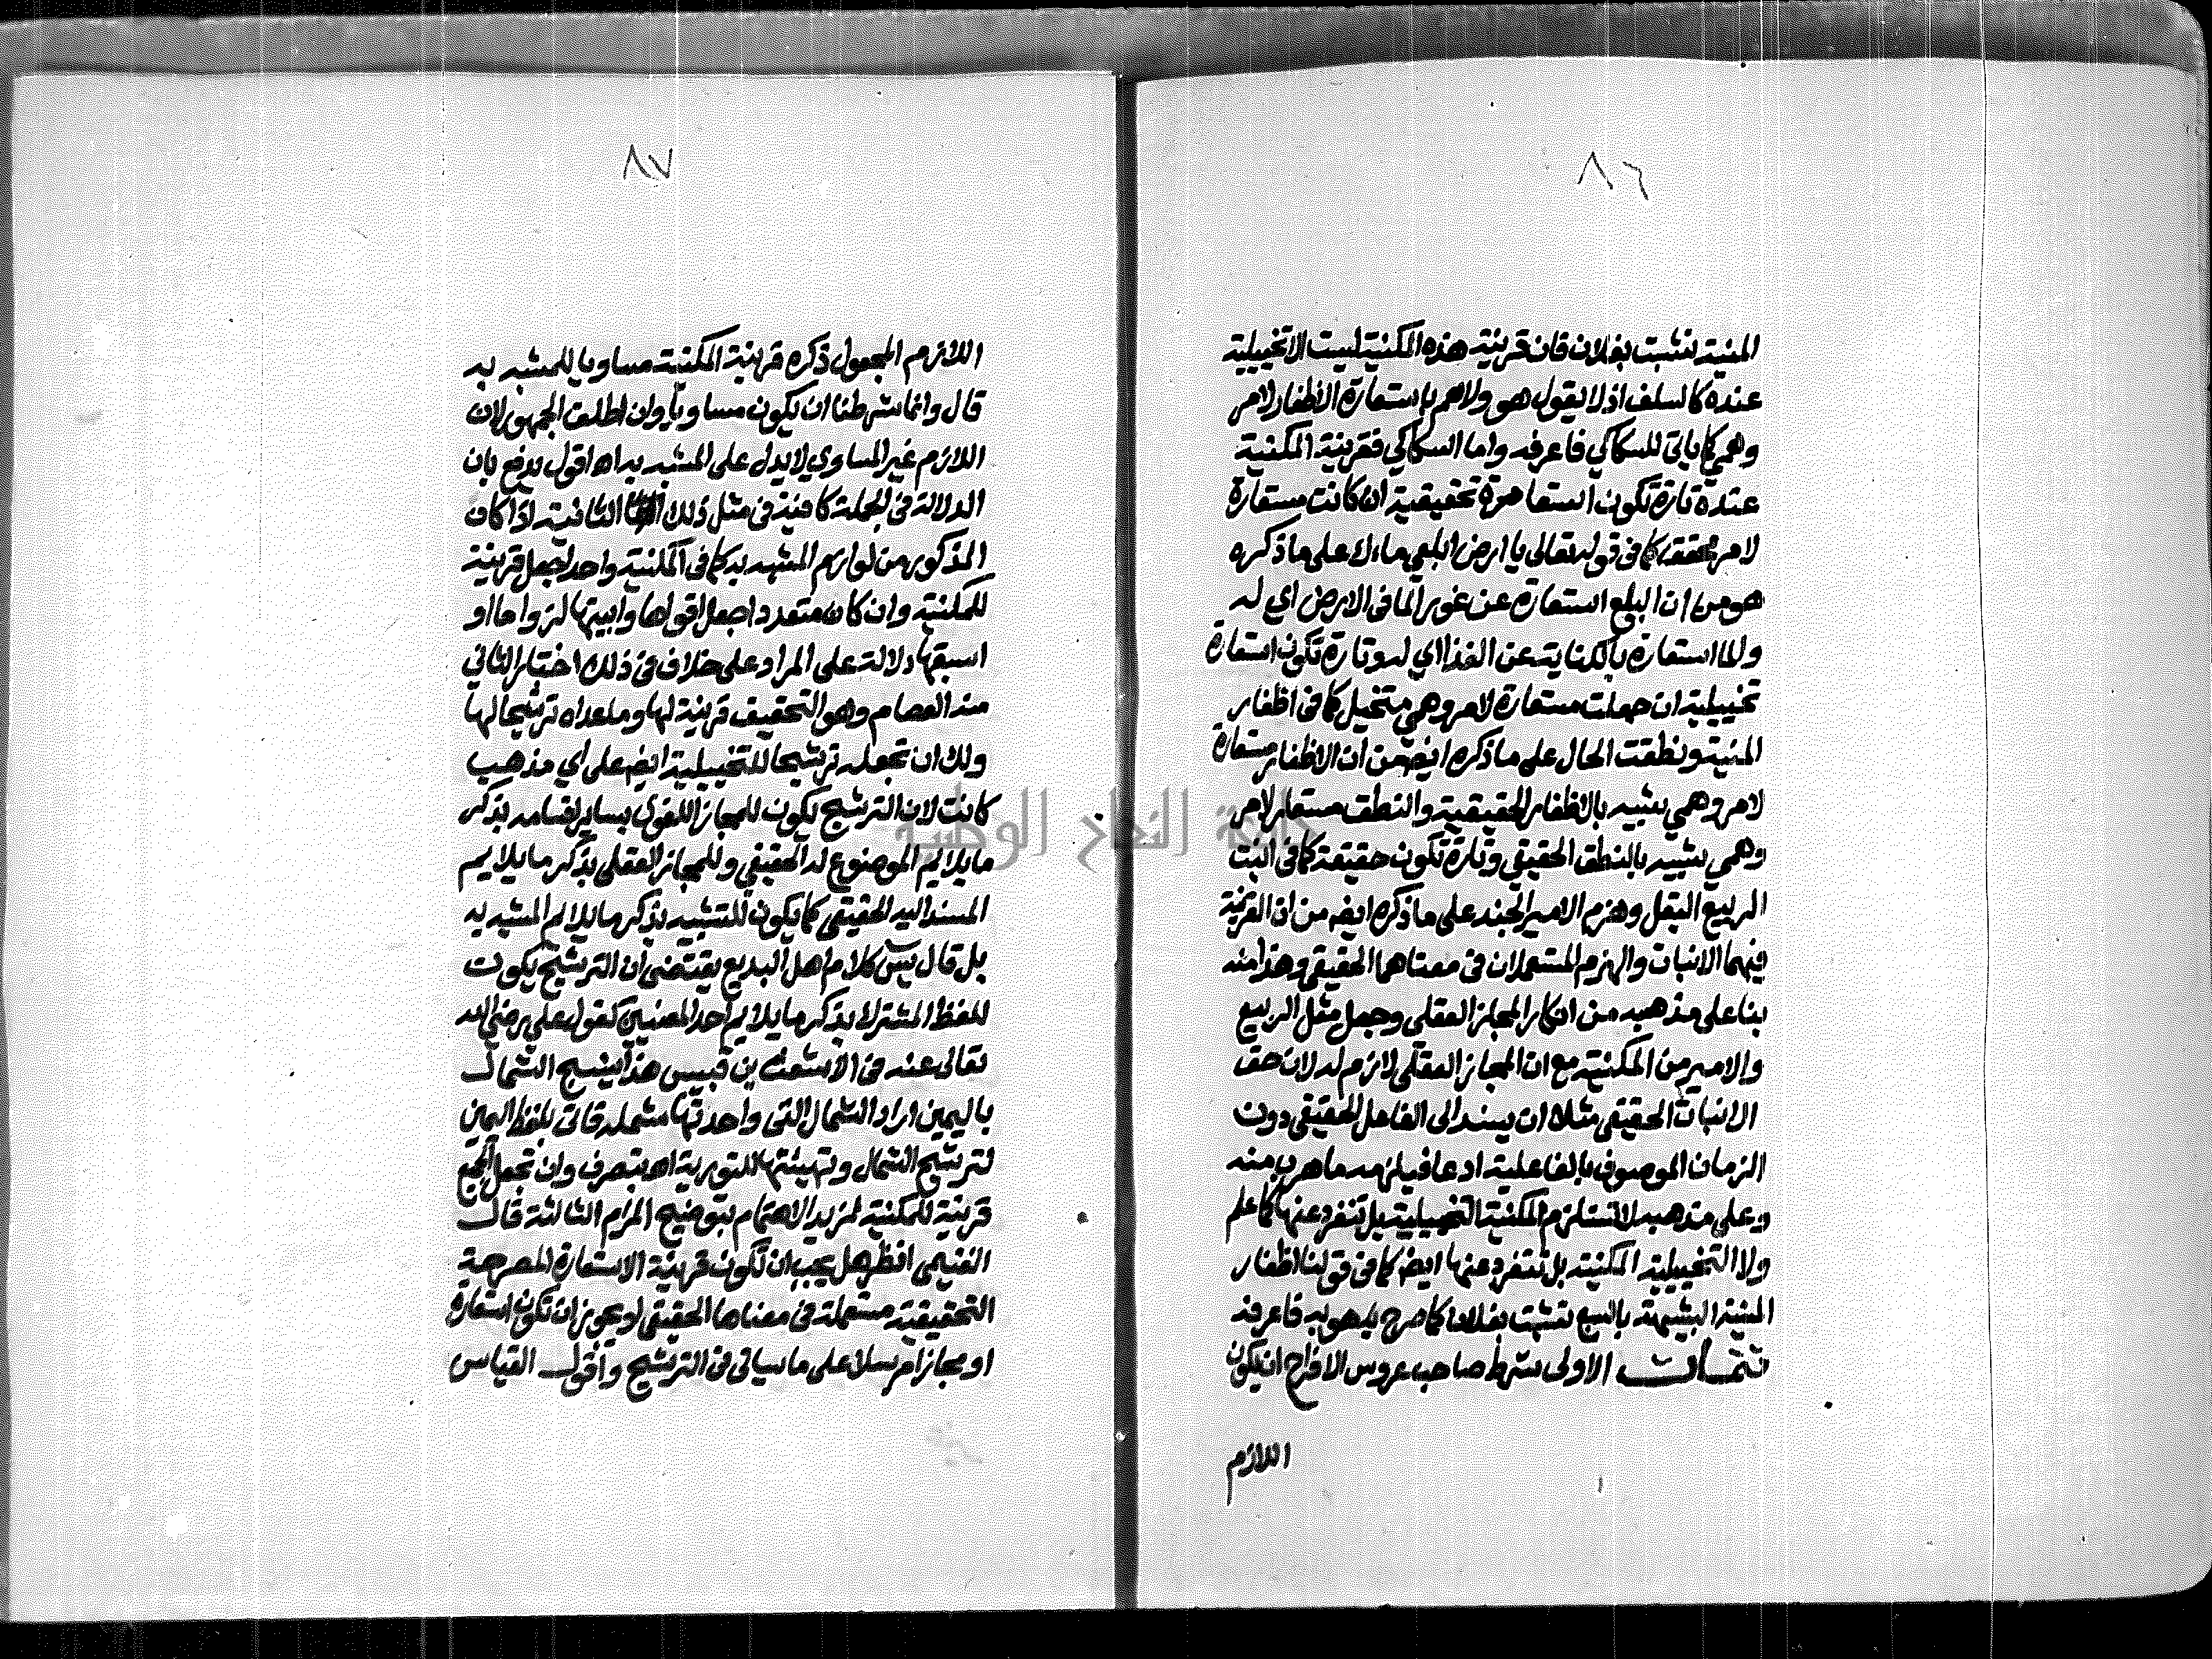 ٨٦
المنية نشبت بفلان فان قرينة هذه المكنية ليست الا تخييلية
عنده كالسلف اذ لا يقول هو ولاهم باستعارة الاظفار لامر
وهمي كما ياتي للسكاكي فاعرفه واما السكاكي فقرينة المكنية
عنده تارة تكون استعارة تحقيقية ان كانت مستعارة
لامر محقق كما في قوله تعالى يا ارض ابلعي ماءك على ما ذكره
هو من ان البلع استعارة عن غور الما في الارض اي له
والما استعارة بالكناية عن الغذا اي له وتارة تكون استعارة
تخييلية ان جعلت مستعارة لامر وهمي متخيل كما في اظفار
المنية ونطقت الحال على ما ذكره ايضا من ان الاظفار مستعارة
لامر وهمي شبيه بالاظفار الحقيقية والنطق مستعار لامر
وهمي شبيه بالنطق الحقيقي وتارة تكون حقيقة كما في انبت
الربيع البقل وهزم الامير الجند على ما ذكره ايضا من ان القرينة
فيهما الانبات والهزم المستعملان في معناهما الحقيقي وهذا منه
بنا على مذهبه من انكار المجاز العقلي وجعل مثل الربيع
والامير من المكنية مع ان المجاز العقلي لازم له لان حق
الانبات الحقيقي مثلا ان يسند الى الفاعل الحقيقي دون
الزمان الموصوف بالفاعلية ادعا فيلزمه ما هرب منه
وعلى مذهبه لا تستلزم المكنية التخييلية بل تنفرد عنها كما علم
ولا التخييلية المكنية بل تنفرد عنها ايضا كما في قولنا اظفار
المنية الشبيهة بالسبع نشبت بفلان كما صرح به هو به فاعرفه
تتمات الاولى شرط صاحب عروس الافراح ان يكون
اللازم
٨٧
اللازم المجعول ذكره قرينة المكنية مساويا للمشبه به
قال وانما شرطنا ان يكون مساويا وان اطلق الجمهور لان
اللازم غير المساوي لا يدل على المشبه به اه اقول يدفع بان
الدلالة في الجملة كافية في مثل ذلك الثانية اذا كان
المذكور من لوازم المشبه به كما في المكنية واحد جعل قرينة
للمكنية وان كان متعددا جعل اقواها وابينها لزوما او
اسبقها دلالة على المراد على خلاف في ذلك اختار الثاني
منه العصام وهو التحقيق قرينة لها وما عداه ترشيحا لها
ولك ان تجعله ترشيحا للتخييلية ايضا على اي مذهب
كانت لان الترشيح يكون للمجاز اللغوي بساير اقسامه بذكر
ما يلايم الموضوع له الحقيقي وللمجاز العقلي بذكر ما يلايم
المسند اليه الحقيقي كما يكون للتشبيه بذكر ما يلايم المشبه به
بل قال يس كلام اهل البديع يقتضي ان الترشيح يكون
للفظ المشترك بذكر ما يلايم احد المعنيين كقول علي رضي الله
تعالى عنه في الاشعث بن قيس هذا ينسج الشمال
باليمين اراد الشمال التي واحدتها مشملة فاتى بلفظ اليمين
لترشيح الشمال وتهيئتها للتورية اه بتصرف وان تجعل الجميع
قرينة للمكنية لمزيد الاهتمام بتوضيح المرام الثالثة قال
الغنيمي انظر هل يجب ان تكون قرينة الاستعارة المصرحة
التحقيقية مستعملة في معناها الحقيقي او يجوز ان تكون استعارة
او مجازا مرسلا على ما سياتي في الترشيح واقول القياس
جامعة النجاح الوطنية